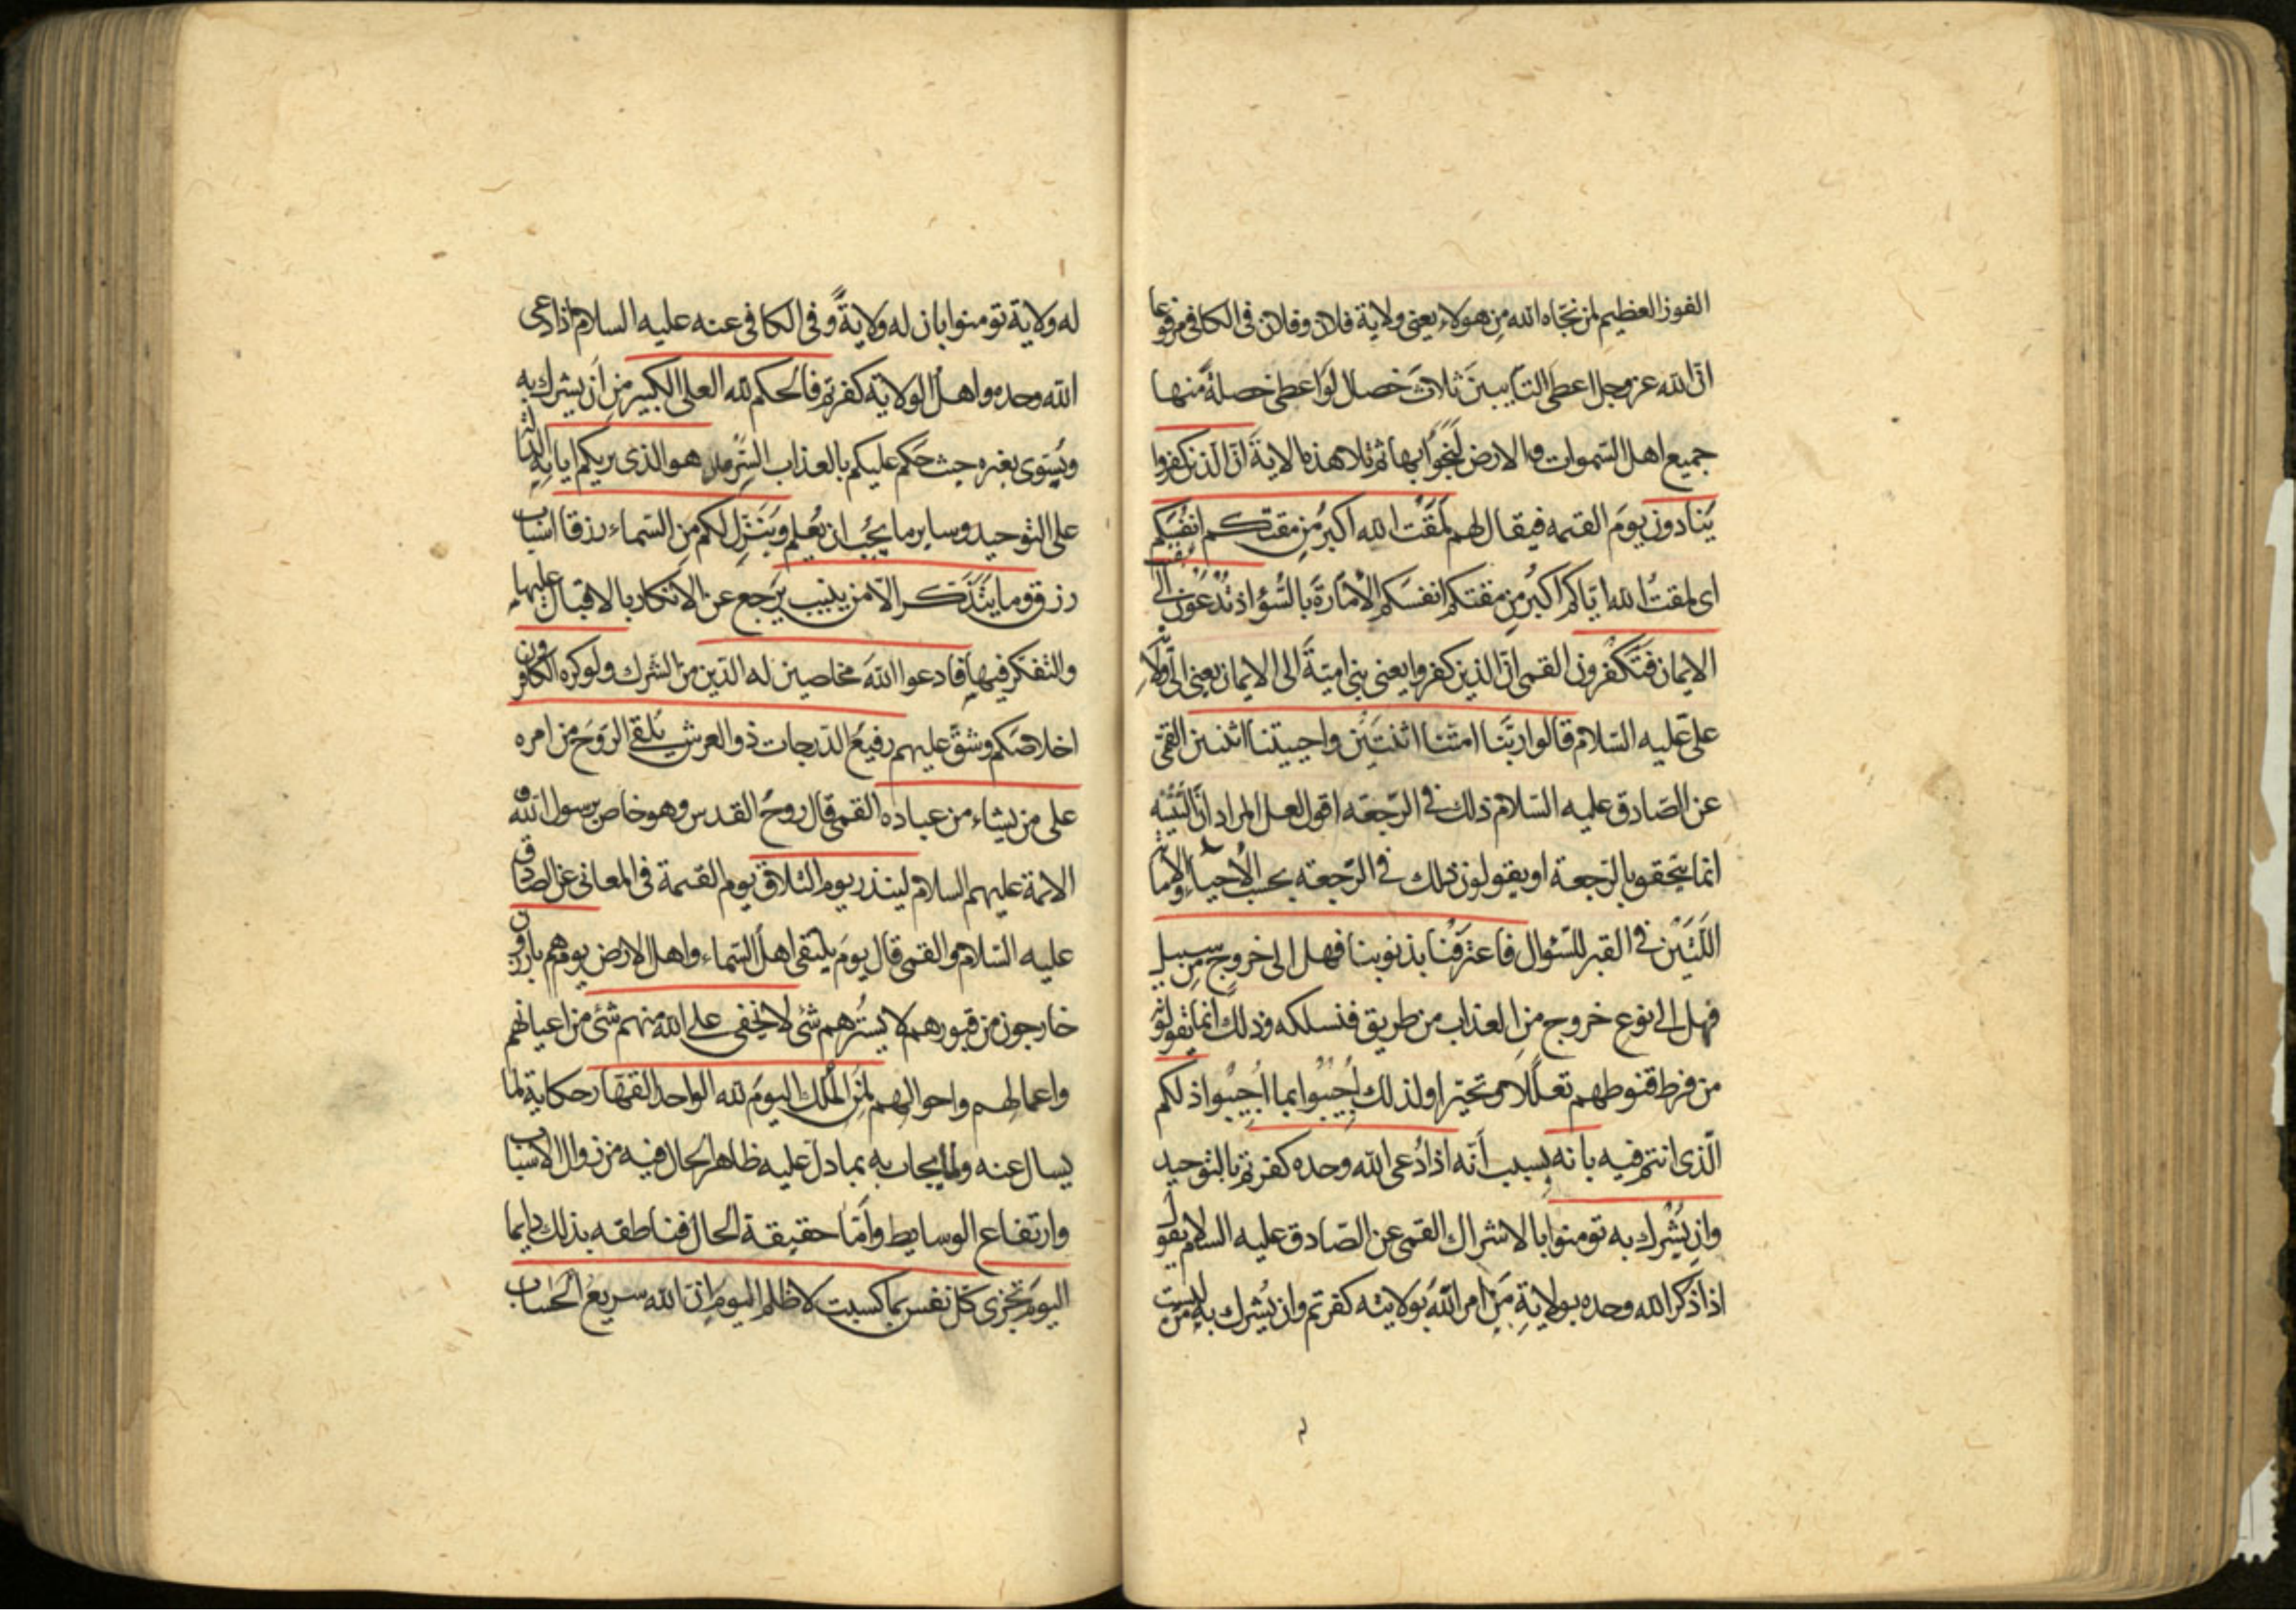 الفوز العظيم لمن نجّاه الله من هولاء يعنى ولاية فلان وفلان فى الكافى مرفوعا
انّ الله عز وجل اعطى التايبين ثلاث خصال لو اعطى خصلةً منها
جميع اهل السّموات والارض لنجوا بها ثم تلا هذه الاية انّ الذين كفروا
يُنادون يومَ القيمه فيقال لهم لمَقتُ الله اكبرُ مِن مقتكم انفُسَكم
اى لمقتُ الله ايّاكم اكبرُ مِن مقتكم انفسَكم الأمّارةَ بالسُّؤ اذ تُدْعَوْن الى
الايمان فتَكْفُرون القمى انّ الذين كفروا يعنى بنى اميّةَ الى الايمان يعنى الى ولاية
علىّ عليه السّلام قالوا ربَّنا امتّنا اثنتَين واحييتنا اثنتين القمّى
عن الصّادق عليه السّلام ذلك فى الرّجعَه اقول لعل المراد انّ التثنيه
انما يتحقق بالرّجعة او يقولون ذلك فى الرّجعه بحسب الأحياء والاماتة
اللّتَيْن فى القبر للسّئوال فاعترفْنا بذنوبنا فهل الى خروجٍ مِن سبيل
فهل الى نوع خروج من العذاب من طريق فنسلكه وذلك انّما يقولونه
من فرط قنوطهم تعلّلا وتحيّرا ولذلك اُجيبُوا بما اُجيبُوا ذلكم
الّذى انتم فيه بانه بسبب أنّه اذا دُعى الله وحده كفرتم بالتوحيد
وان يُشْرك به تومنوا بالاشراك القمى عن الصّادق عليه السلام يقول
اذا ذكر الله وحده بولايةِ مَن امر اللهُ بولايته كفرتم وان يُشرك بهِ مَن ليست
له ولاية تومنوا بان له ولايةً وفى الكافى عنه عليه السلام اذا دعى
الله وحده واهل الولاية كفرتم فالحكم لله العلى الكبير من اَن يشرك به
ويُسَوى بغيره حيث حَكم عليكم بالعذاب السّرمد هو الذى يريكم اياتِهِ الدالة
على التوحيد وساير ما يجُب ان يُعلم ويُنَزّل لكم مِن السّماء رزقا اسباب
رزقٍ وما يتذَكّر الّا من ينيب يَرجع عن الانكار بالاقبال عليها
والتفكر فيها فادعوا اللهَ مخلصين له الدّين من الشرك ولو كره الكافرون
اخلاصَكم وشقّ عليهم رفيعُ الدّرجات ذو العرش يُلقى الرّوحَ من امره
على من يشاء من عباده القمى قال روحُ القدس وهو خاص برسول الله و
الائمة عليهم السلام لينذر يوم التلاق يوم القيمة فى المعانى عن الصادق
عليه السّلام والقمى قال يومَ يلتقى اهلُ السّماء واهل الارض يوم هم بارزون
خارجون من قبورهم لا يَستُرهم شئ لا يَخفى على الله منهم شَئ من اعيانهم
واعمالهم واحوالهم لِمَن المُلك اليومَ لله الواحد القهّار حكاية لما
يسال عنه ولما يجاب به بما دلّ عليه ظاهر الحال فيه من زوال الاسباب
وارتفاع الوسايط وأمّا حقيقة الحال فناطقه بذلك دايما
اليومَ تُجزى كلّ نفس بما كسبت لا ظلم اليوم اِنّ الله سريعُ الحساب